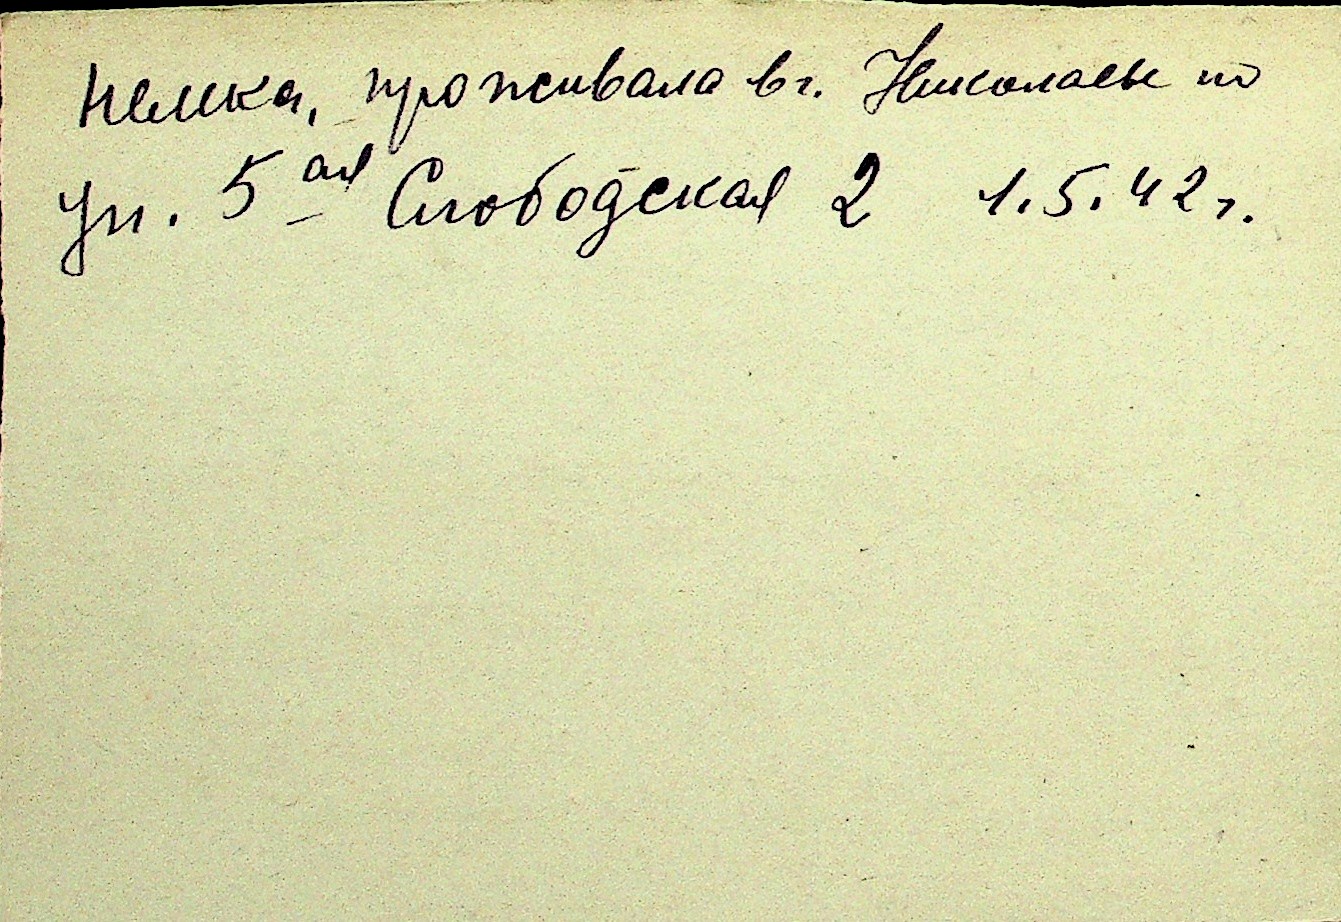 немка, проживала в г. Николаеве по
ул. 5ая Слободская 2 1.5.42 г.